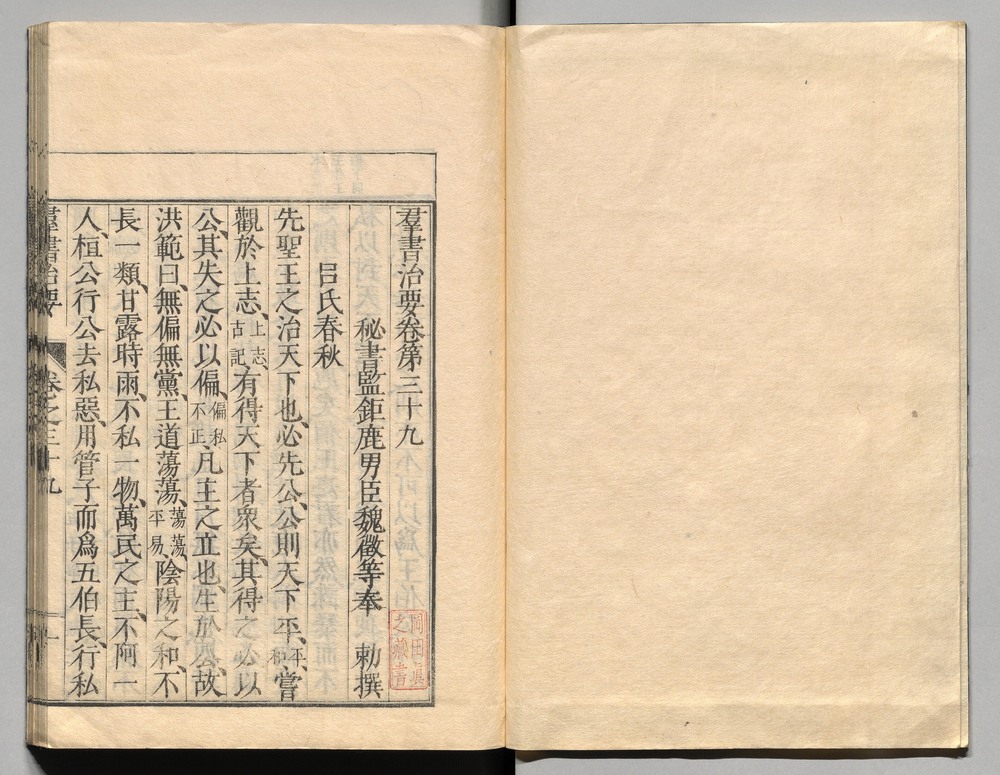 羣書治要卷第三十九
秘書監鉅鹿男臣魏徵等奉　勅撰
呂氏春秋
先聖王之治天下也、必先公、公則天下平、平和嘗
觀於上志、上志古記有得天下者衆矣、其得之必以
公、其失之必以偏、偏私不正凡主之立也、生於公、故
洪範曰、無偏無黨、王道蕩蕩、蕩蕩平易、陰陽之和、不
長一類、甘露時雨、不私一物、萬民之主、不阿一
人、桓公行公去私惡、用管子而爲五伯長、行私
羣書治要　卷之三十九　一
岡田眞
之藏書